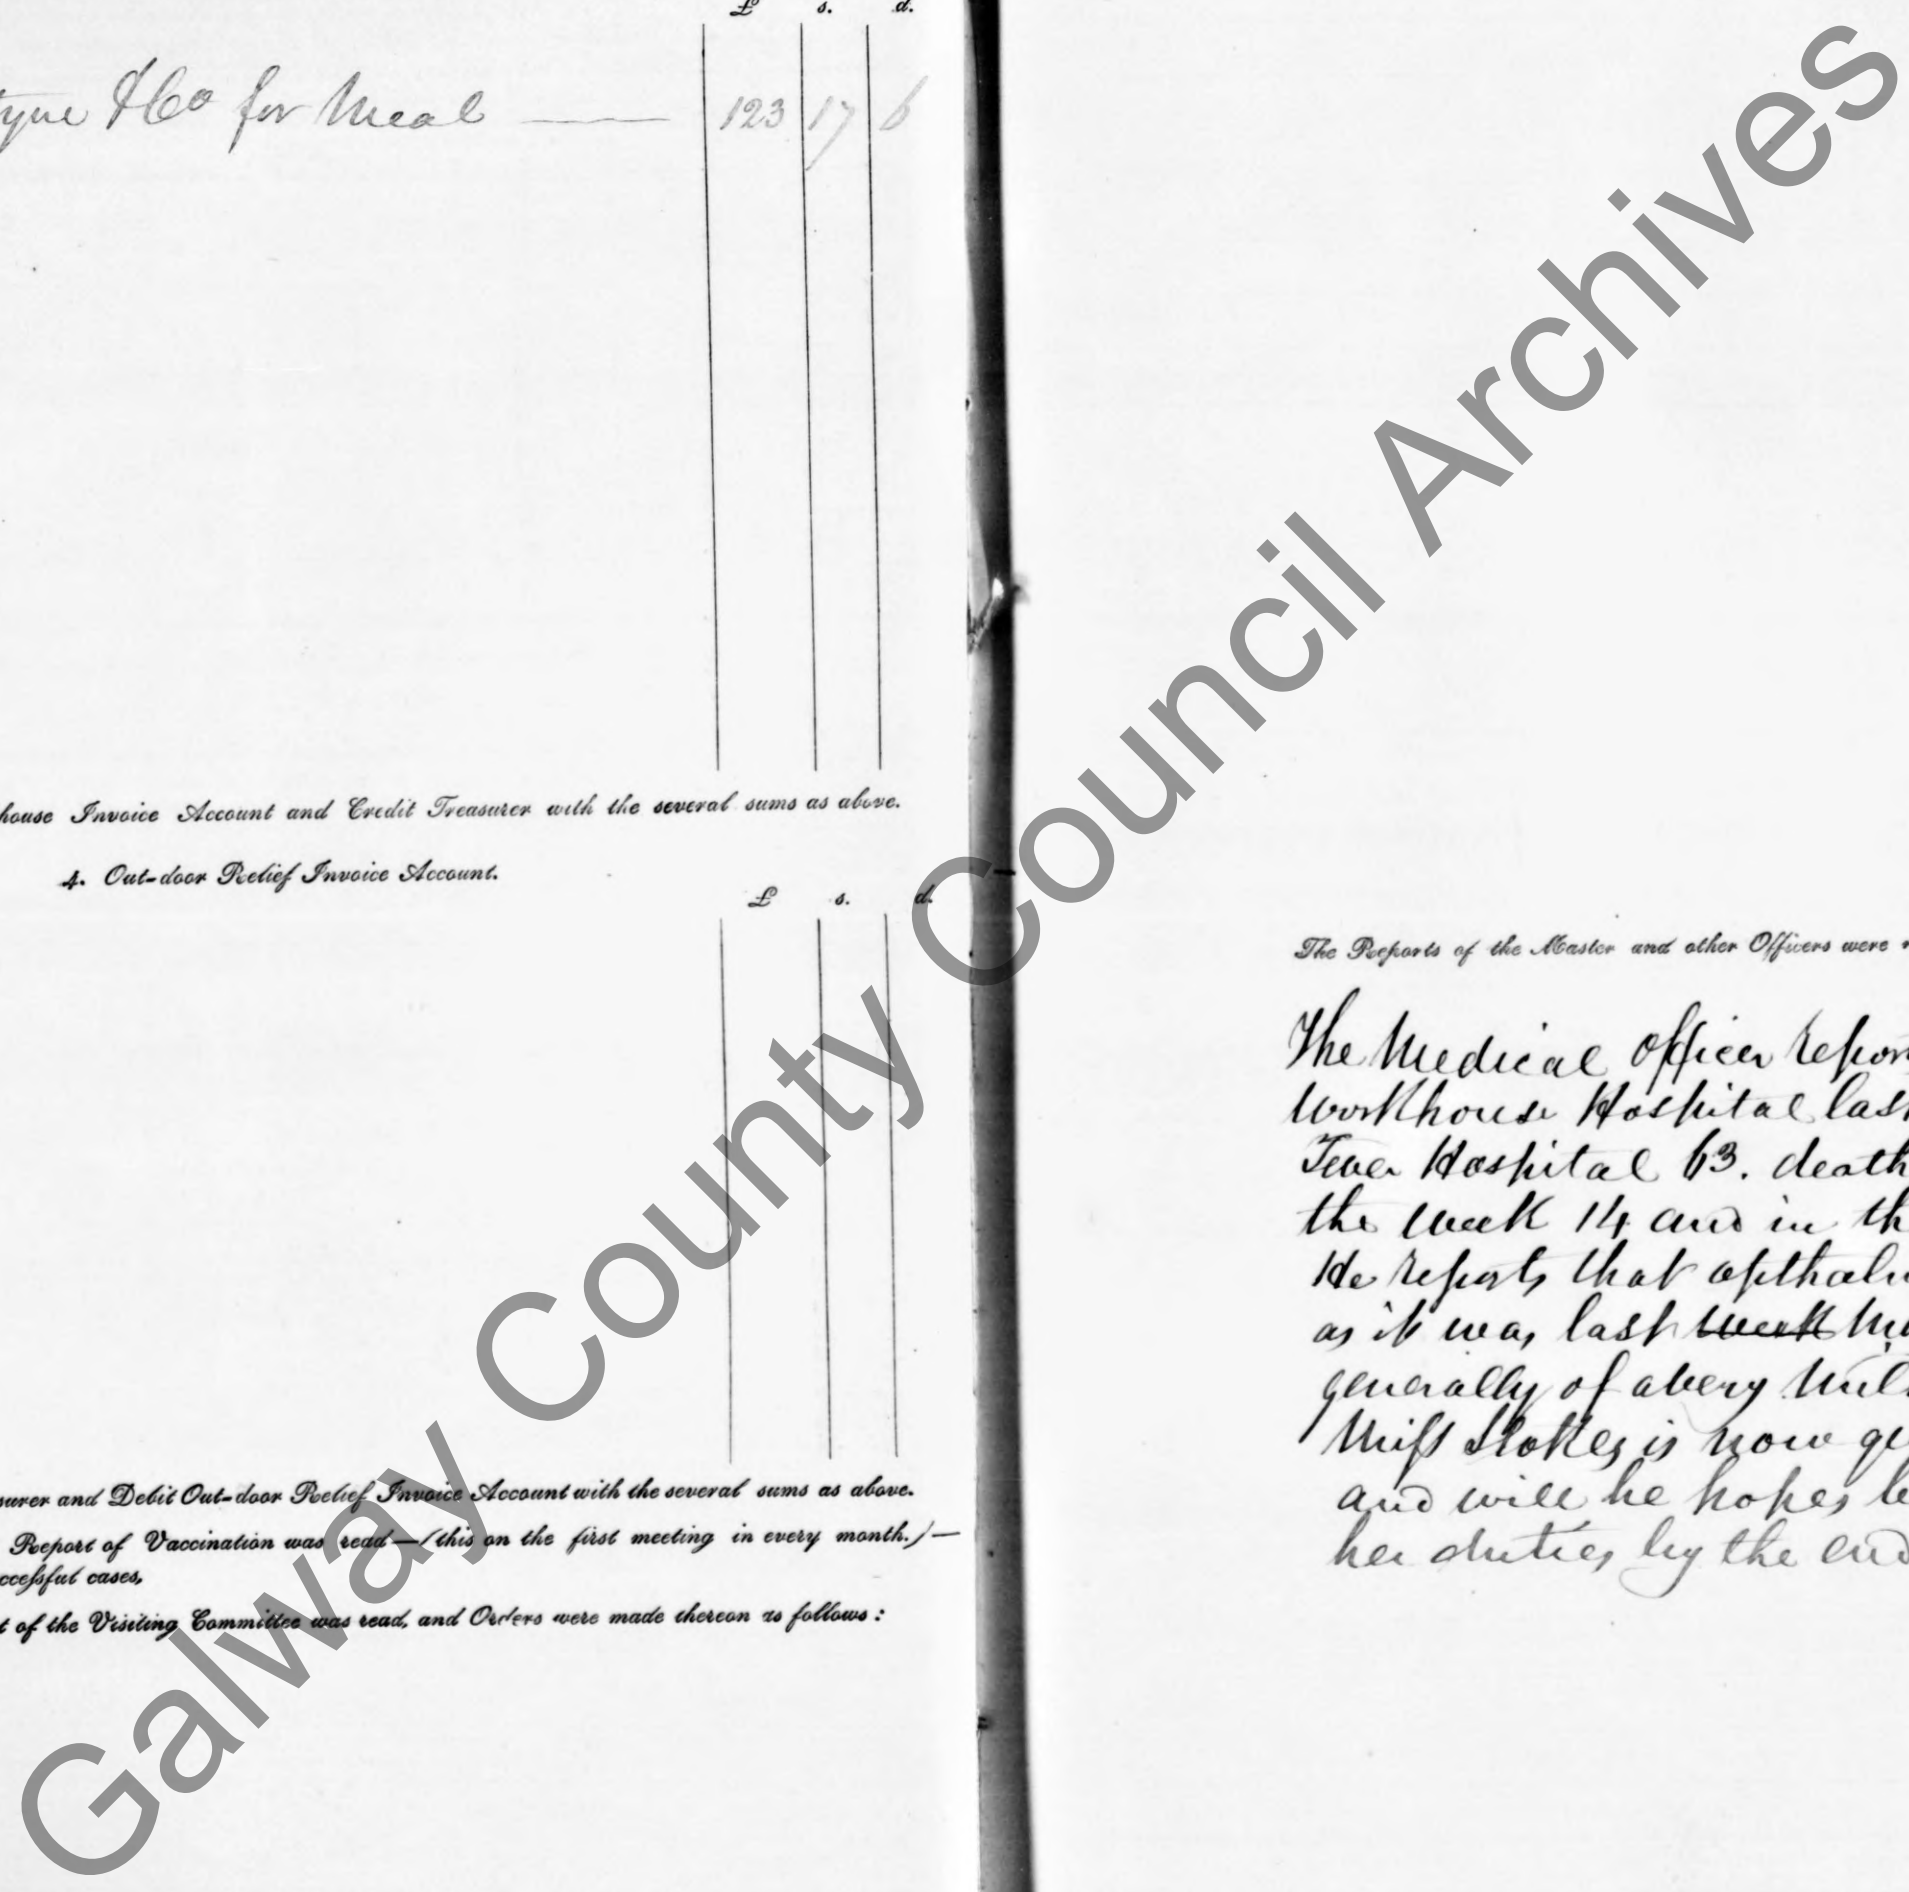 £ s. d.
tyne & Co for Meal — 123 17 6
house Invoice Account and Credit Treasurer with the several sums as above.
4. Out-door Relief Invoice Account.
£ s. d.
surer and Debit Out-door Relief Invoice Account with the several sums as above.
Report of Vaccination was read—(this on the first meeting in every month.)—
ccessful cases,
t of the Visiting Committee was read, and Orders were made thereon as follows:
The Reports of the Master and other Officers were r
The Medical Officer repor
Workhouse Hospital last
Fever Hospital 63. death
the week 14 and in th
He reports that opthalm
as it was last week
generally of a very mil
Miss Stokes is now ge
and will he hopes be
her duties by the end
Galway County Council Archives